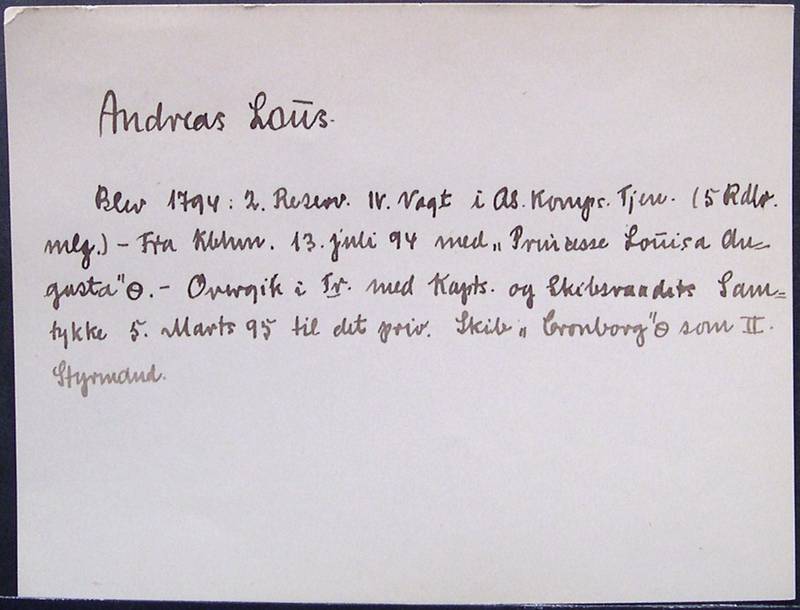 Andreas Loūs.
Blev 1794: 2. Reserv. IV. Vagt i As. Komps. Tjen. (5 Rdlr.
mlg.) – Fra Kbhvn. 13. juli 94 med „Princesse Loūisa Au=
gusta" ⊖. – Overgik i Tr. med Kapts. og Skibsraadets Sam=
tykke 5. Marts 95 til det priv. Skib „Cronborg" ⊖ som II.
Styrmand.